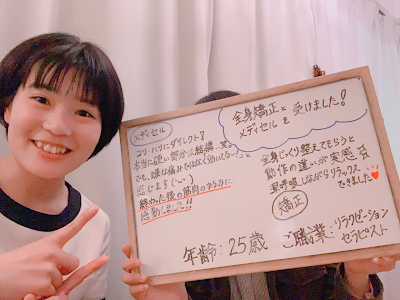 全身矯正と
メディセルを受けました！
メディセル
コリ・ハリにダイレクト!!
本当に硬い部分は結構…笑
でも、嫌な痛みではなく効いてる〜!と
感じます(･ω･)
終わった後の筋肉のゆるみに
感動しました!!
全身じっくり整えてもらうと
動作の違いが実感を
深呼吸しながらリラックス
できました♥
矯正
年齢：25歳
ご職業：リラクゼーション
セラピスト